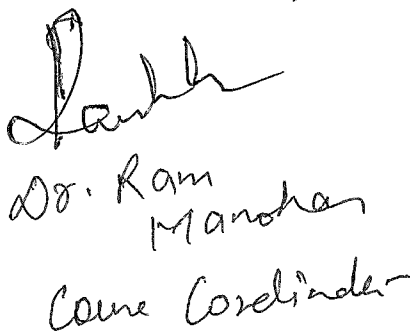 Dr. Ram
Manohar
Course Coordinator